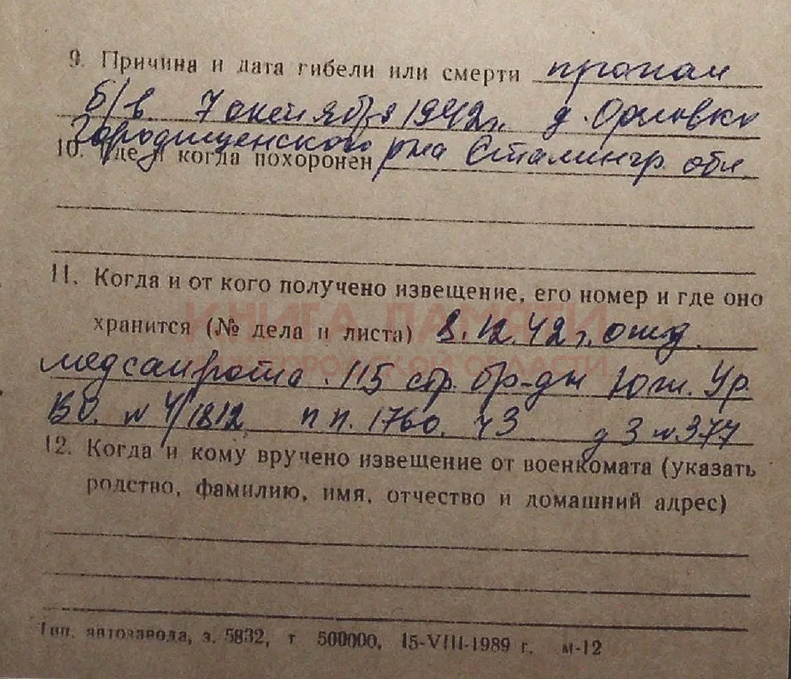 9. Причина и дата гибели или смерти пропал
б/в 7 октября 1942 г. д. Орловка
Городищенского р-на Сталингр. обл.
10. Где и когда похоронен
11. Когда и от кого получено извещение, его номер и где оно
хранится (№ дела и листа) 8.12.42 г. отд.
медсанрота. 115 стр. бр-ды Юж. Ур.
ВО. № 4/1812 п п. 1760. ч3 д 3 № 377
12. Когда и кому вручено извещение от военкомата (указать
родство, фамилию, имя, отчество и домашний адрес)
Тип. автозавода, з. 5832, т 500000, 15-VIII-1989 г. м-12
КНИГА ПАМЯТИ